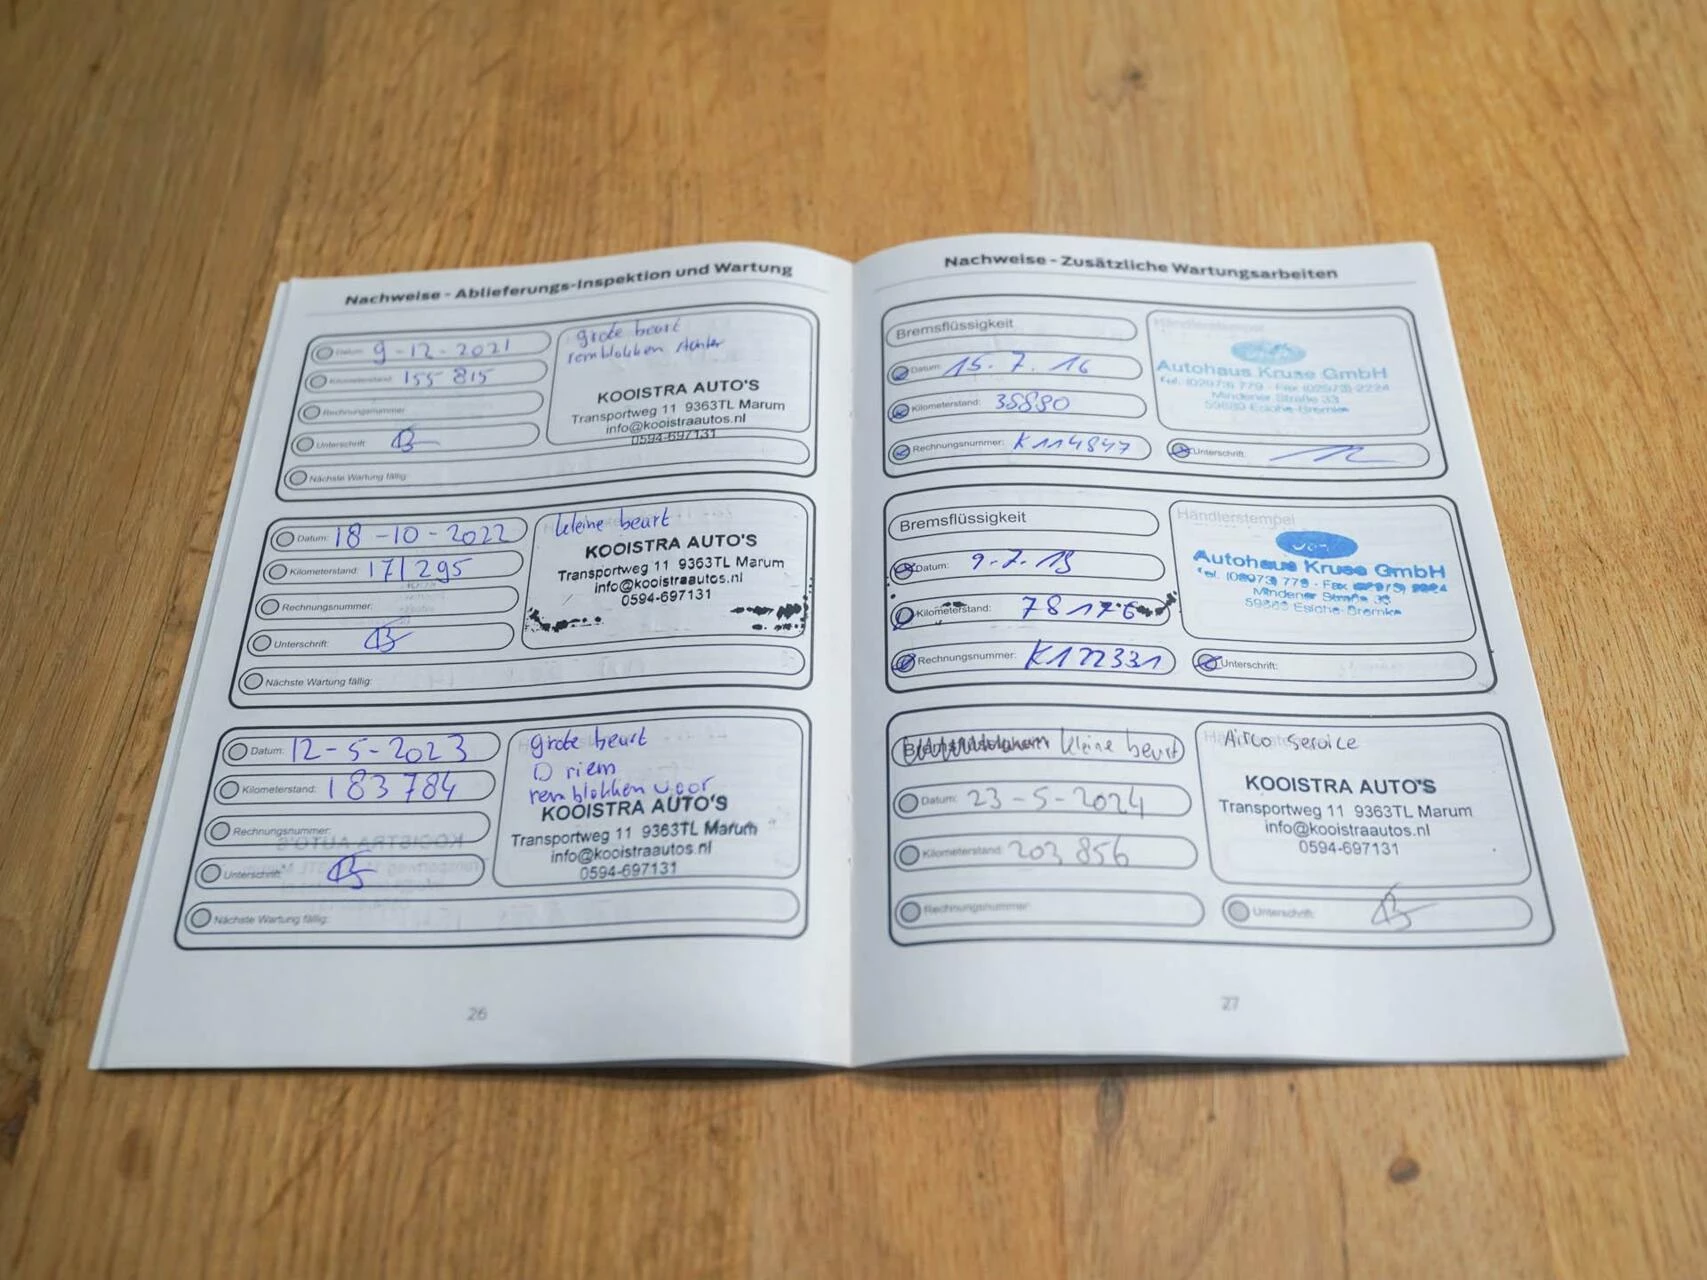 Nachweise - Ablieferungs-Inspektion und Wartung
Datum: 9-12-2021
Kilometerstand: 155 815
Rechnungsnummer:
Unterschrift:
Nächste Wartung fällig:
grote beurt
remblokken achter
KOOISTRA AUTO'S
Transportweg 11 9363TL Marum
info@kooistraautos.nl
0594-697131
Datum: 18-10-2022
Kilometerstand: 171295
Rechnungsnummer:
Unterschrift:
Nächste Wartung fällig:
kleine beurt
KOOISTRA AUTO'S
Transportweg 11 9363TL Marum
info@kooistraautos.nl
0594-697131
Datum: 12-5-2023
Kilometerstand: 183784
Rechnungsnummer:
Unterschrift:
Nächste Wartung fällig:
grote beurt
D riem
remblokken voor
KOOISTRA AUTO'S
Transportweg 11 9363TL Marum
info@kooistraautos.nl
0594-697131
26
Nachweise - Zusätzliche Wartungsarbeiten
Bremsflüssigkeit
Datum: 15.7.16
Kilometerstand:
Rechnungsnummer: K114847
Händlerstempel
Autohaus Kruse GmbH
Tel. (02973) 779 - Fax (02973) 2224
Mindener Straße 33
59889 Eslohe-Bremke
Unterschrift:
Bremsflüssigkeit
Datum:
Kilometerstand: 78176
Rechnungsnummer: K122331
Händlerstempel
Autohaus Kruse GmbH
Tel. (02973) 779 - Fax (02973) 2224
Mindener Straße 33
59889 Eslohe-Bremke
Unterschrift:
kleine beurt
Datum: 23-5-2024
Kilometerstand: 203 856
Rechnungsnummer:
Airco service
KOOISTRA AUTO'S
Transportweg 11 9363TL Marum
info@kooistraautos.nl
0594-697131
Unterschrift:
27